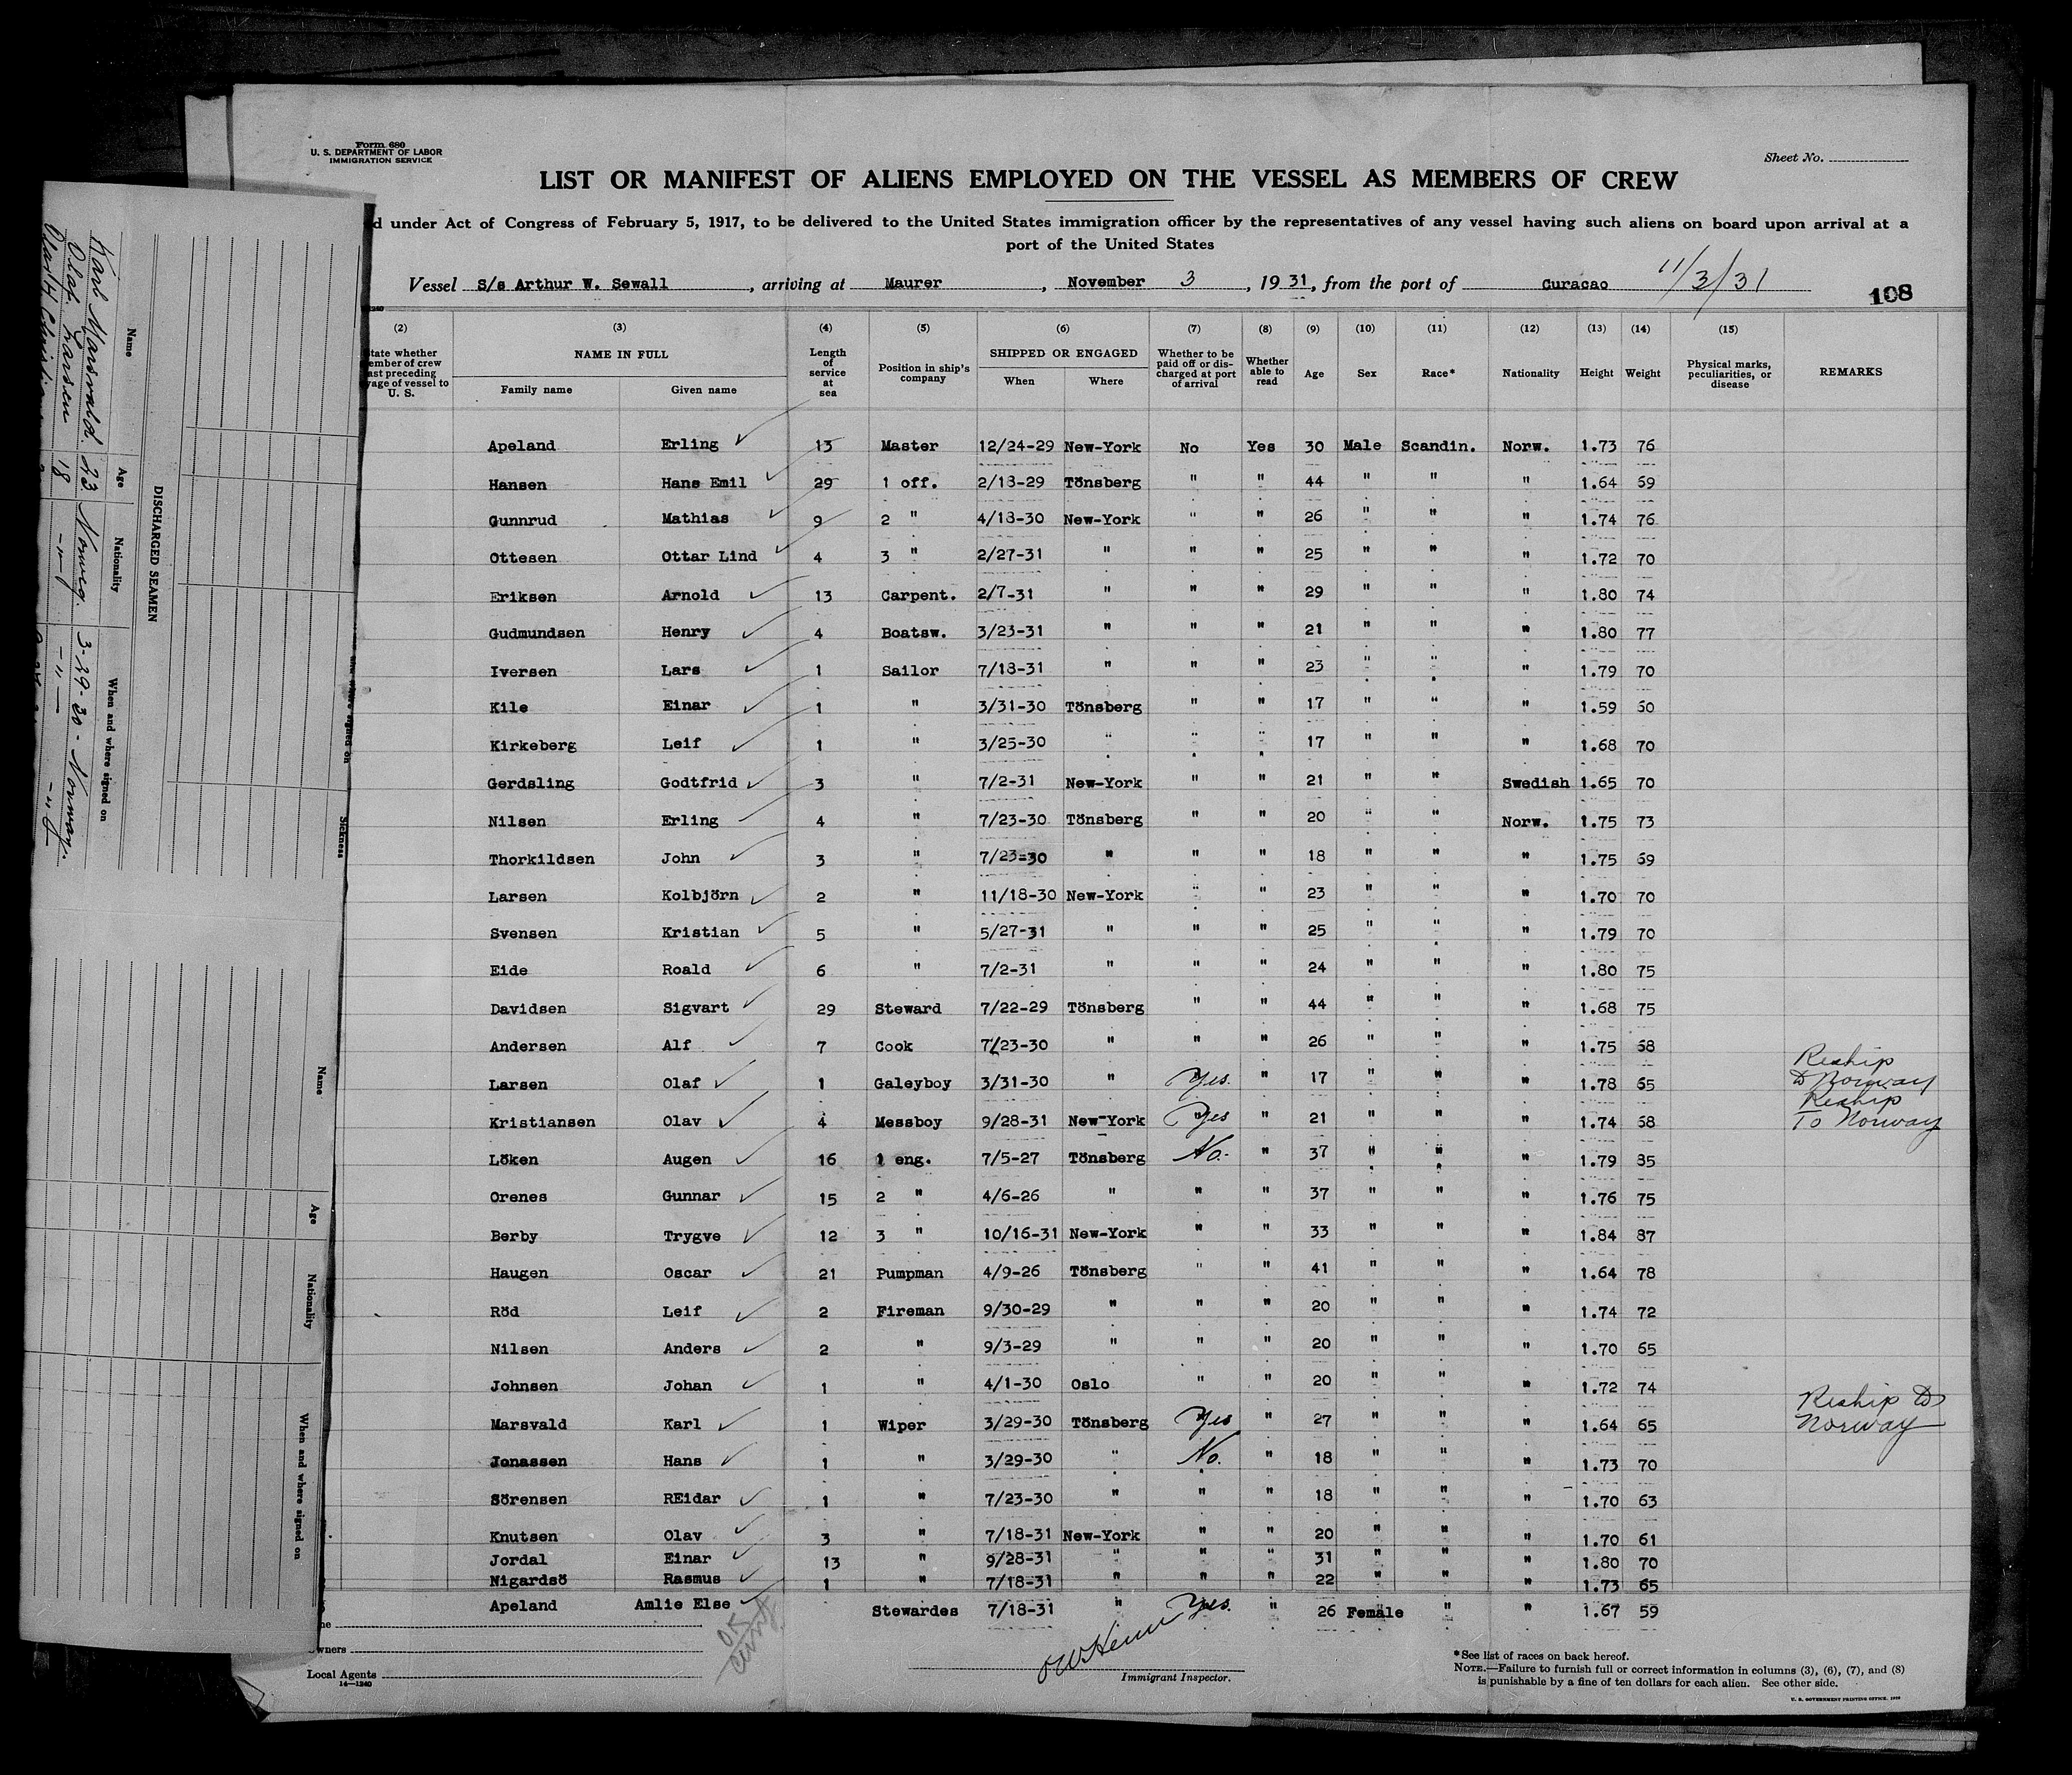 Form 680
U. S. DEPARTMENT OF LABOR
IMMIGRATION SERVICE
Sheet No.
LIST OR MANIFEST OF ALIENS EMPLOYED ON THE VESSEL AS MEMBERS OF CREW
d under Act of Congress of February 5, 1917, to be delivered to the United States immigration officer by the representatives of any vessel having such aliens on board upon arrival at a
port of the United States
Vessel S/s Arthur W. Sewall, arriving at Maurer, November 3, 1931, from the port of Curacao 11/3/31
108
(2) (3) (4) (5) (6) (7) (8) (9) (10) (11) (12) (13) (14) (15)
tate whether
ember of crew
ast preceding
yage of vessel to
U. S.
NAME IN FULL
Family name Given name
Length
of
service
at
sea
Position in ship's
company
SHIPPED OR ENGAGED
When Where
Whether to be
paid off or dis-
charged at port
of arrival
Whether
able to
read
Age Sex Race* Nationality Height Weight
Physical marks,
peculiarities, or
disease
REMARKS
Apeland Erling 13 Master 12/24-29 New-York No Yes 30 Male Scandin. Norw. 1.73 76
Hansen Hans Emil 29 1 off. 2/13-29 Tönsberg " " 44 " " " 1.64 59
Gunnrud Mathias 9 2 " 4/18-30 New-York " " 26 " " " 1.74 76
Ottesen Ottar Lind 4 3 " 2/27-31 " " " 25 " " " 1.72 70
Eriksen Arnold 13 Carpent. 2/7-31 " " " 29 " " " 1.80 74
Gudmundsen Henry 4 Boatsw. 3/23-31 " " " 21 " " " 1.80 77
Iversen Lars 1 Sailor 7/18-31 " " " 23 " " " 1.79 70
Kile Einar 1 " 3/31-30 Tönsberg " " 17 " " " 1.59 50
Kirkeberg Leif 1 " 3/25-30 " " " 17 " " " 1.68 70
Gerdsling Godtfrid 3 " 7/2-31 New-York " " 21 " " Swedish 1.65 70
Nilsen Erling 4 " 7/23-30 Tönsberg " " 20 " " Norw. 1.75 73
Thorkildsen John 3 " 7/23-30 " " " 18 " " " 1.75 69
Larsen Kolbjörn 2 " 11/18-30 New-York " " 23 " " " 1.70 70
Svensen Kristian 5 " 5/27-31 " " " 25 " " " 1.79 70
Eide Roald 6 " 7/2-31 " " " 24 " " " 1.80 75
Davidsen Sigvart 29 Steward 7/22-29 Tönsberg " " 44 " " " 1.68 75
Andersen Alf 7 Cook 7/23-30 " " " 26 " " " 1.75 58
Larsen Olaf 1 Galeyboy 3/31-30 " Yes. " 17 " " " 1.78 65 Reship to Norway
Kristiansen Olav 4 Messboy 9/28-31 New-York Yes " 21 " " " 1.74 68 Reship To Norway
Löken Augen 16 1 eng. 7/5-27 Tönsberg No.- " 37 " " " 1.79 85
Orenes Gunnar 15 2 " 4/6-26 " " " 37 " " " 1.76 75
Berby Trygve 12 3 " 10/16-31 New-York " " 33 " " " 1.84 87
Haugen Oscar 21 Pumpman 4/9-26 Tönsberg " " 41 " " " 1.64 78
Röd Leif 2 Fireman 9/30-29 " " " 20 " " " 1.74 72
Nilsen Anders 2 " 9/3-29 " " " 20 " " " 1.70 65
Johnsen Johan 1 " 4/1-30 Oslo " " 20 " " " 1.72 74
Marsvald Karl 1 Wiper 3/29-30 Tönsberg Yes " 27 " " " 1.64 65 Reship to Norway
Jonassen Hans 1 " 3/29-30 " No. " 18 " " " 1.73 70
Sörensen REidar 1 " 7/23-30 " " " 18 " " " 1.70 63
Knutsen Olav 3 " 7/18-31 New-York " " 20 " " " 1.70 61
Jordal Einar 13 " 9/28-31 " " " 31 " " " 1.80 70
Nigardsö Rasmus 1 " 7/18-31 " " " 22 " " " 1.73 65
Apeland Amlie Else Stewardes 7/18-31 " Yes. " 26 Female " " 1.67 59
ne
wners
Local Agents
14—1240
O.K
Immigrant Inspector.
*See list of races on back hereof.
NOTE.—Failure to furnish full or correct information in columns (3), (6), (7), and (8)
is punishable by a fine of ten dollars for each alien. See other side.
U. S. GOVERNMENT PRINTING OFFICE
DISCHARGED SEAMEN
Name Age Nationality When and where signed on
Karl Marsvald. 23. Norweg. 3-29-30 - Norway.
Olaf Larsen 18 -"- -"-
Sickness
Name Age Nationality When and where signed on